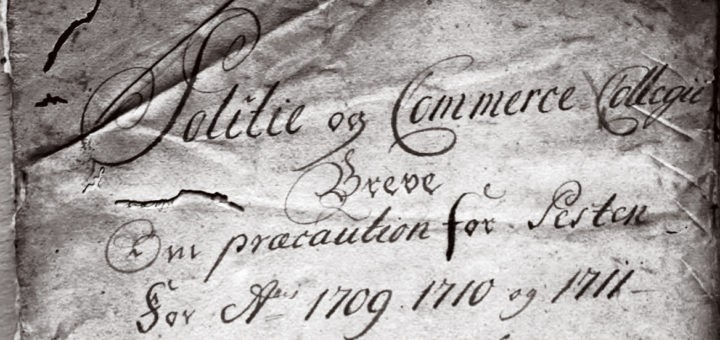 Politie og Commerce Collegie
Breve
Om præcaution for Pesten
For A⁰ 1709. 1710 og 1711